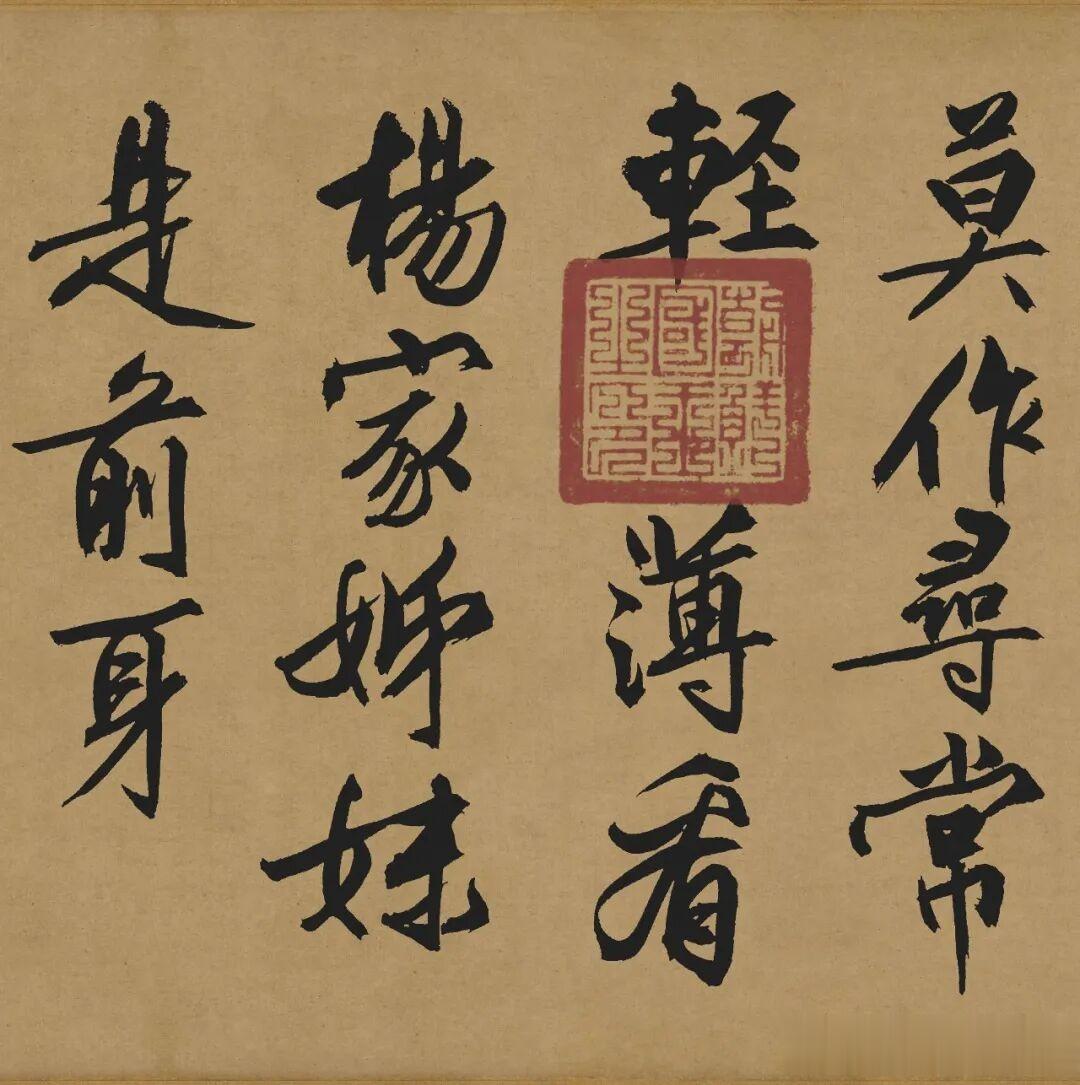 莫作尋常
輕薄看
楊家姊妹
是前身